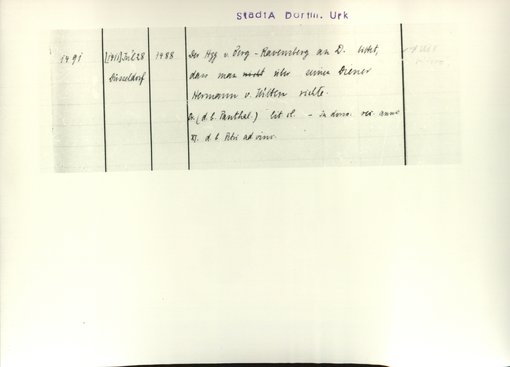 StadtA Dortm. Urk
1491 [1411] Juli 28 1488 Der Hzg v. Berg-Ravensberg an D. bittet,
Düsseldorf dass man nicht über seinen Diener
Hermann v. Witten richte
Or. (d. b. Panthal.) lit. cl. - in dorso: rec. anno
XI. d. b. Petri ad vinc.